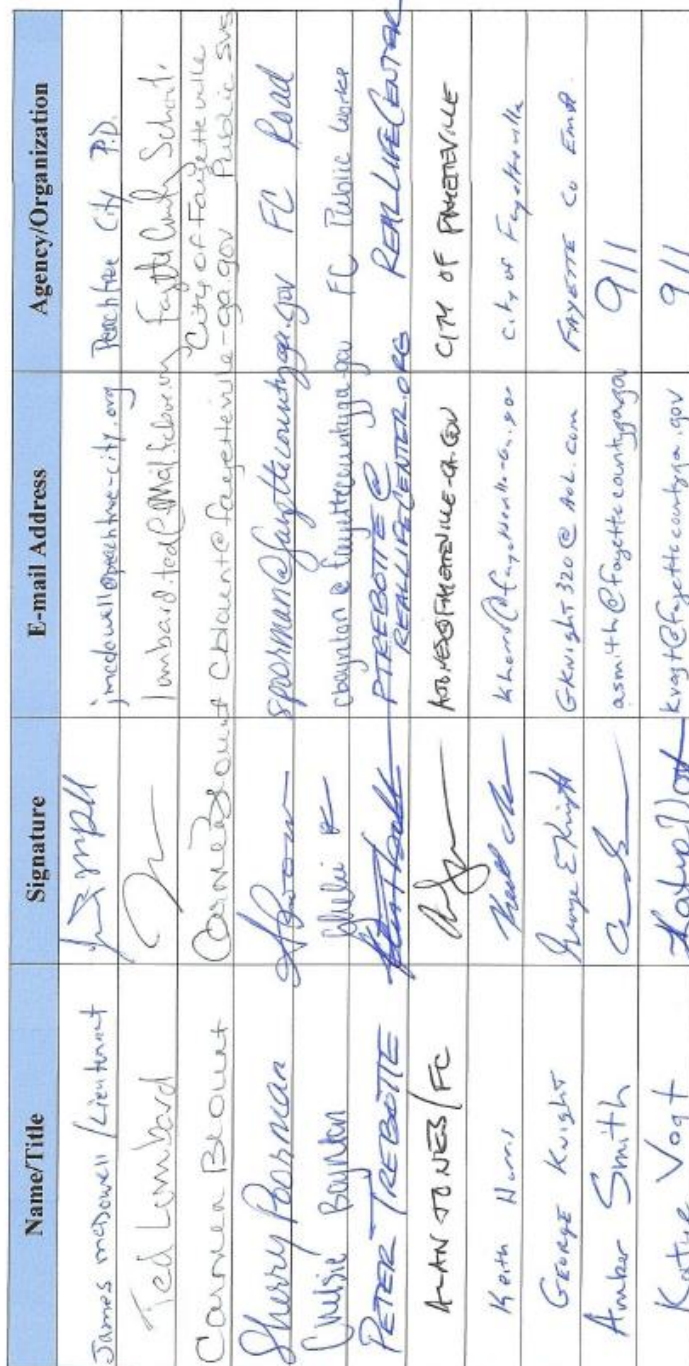 Name/Title Signature E-mail Address Agency/Organization
James McDowell / Lieutenant jmcdowell@peachtree-city.org Peachtree City P.D.
Ted Lombard Fayette County School
Carmen Blount Carmen Blount cblount@fayetteville-ga.gov City of Fayetteville
Public Svs
Sherry Poorman spoorman@fayettecountyga.gov FC Road
Chelsie Boynton cboynton@fayettecountyga.gov FC Public Works
PETER TREBOTTE PTREBOTTE@
REALLIFECENTER.ORG REALLIFECENTER
ALAN JONES/FC CITY OF FAYETTEVILLE
Keith Harris City of Fayetteville
GEORGE KNIGHT George E Knight GKnight320@AOL.com FAYETTE Co EmA
Amber Smith asmith@fayettecountyga.gov 911
Katye Vogt Katye Vogt kvogt@fayettecountyga.gov 911